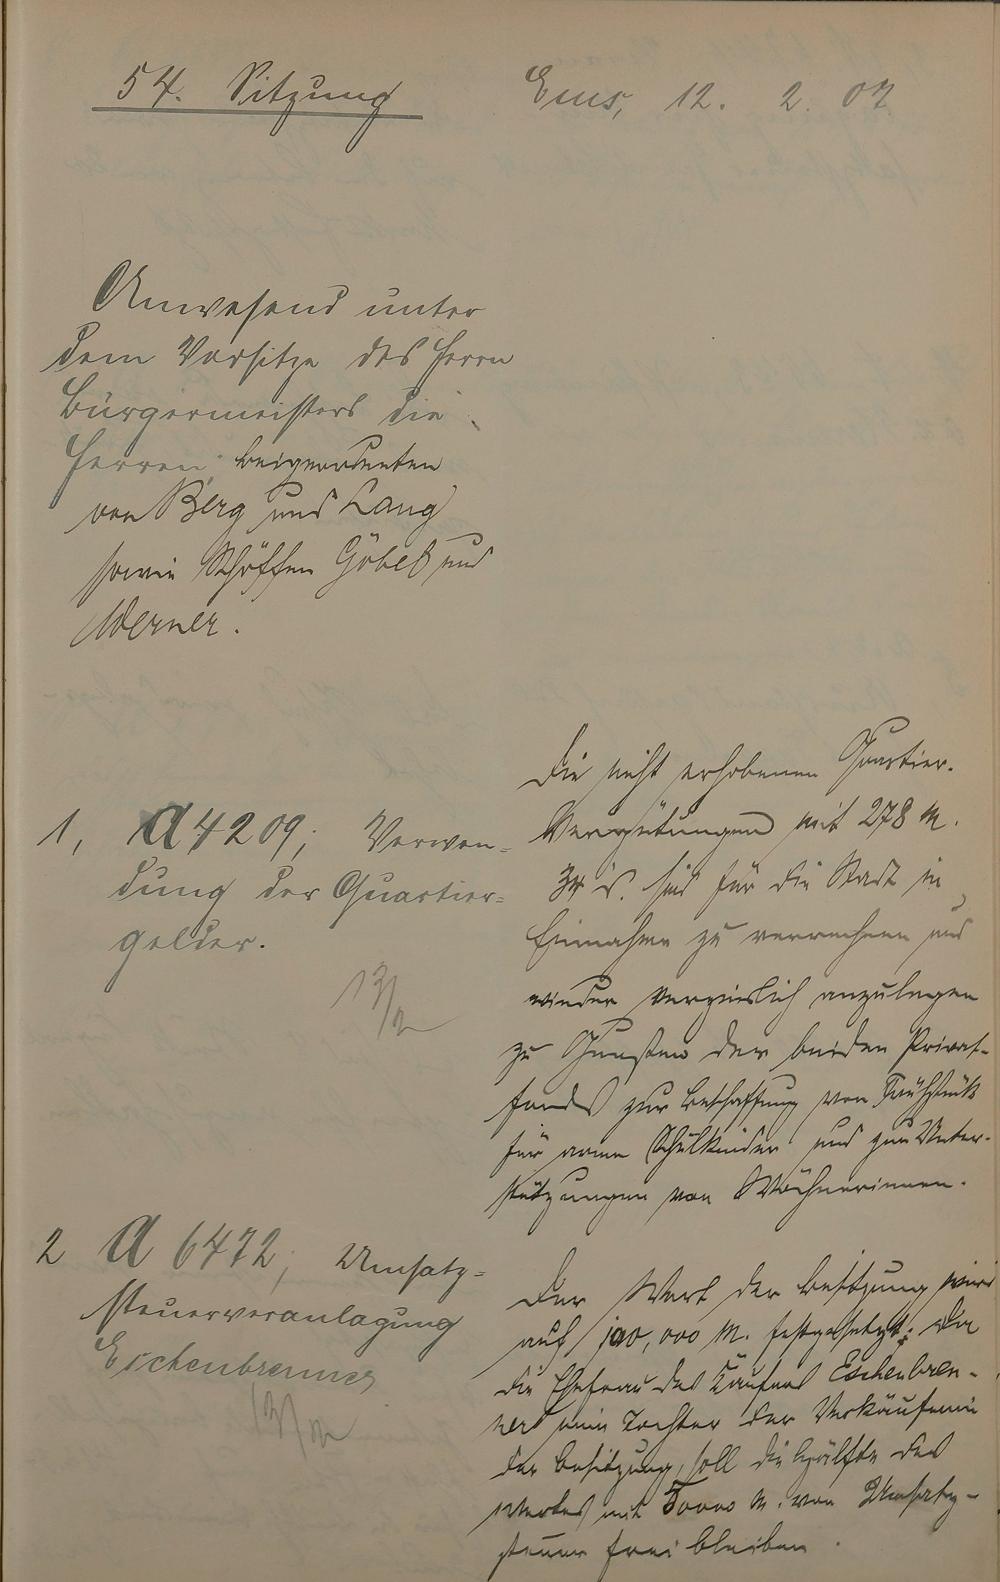 54. Sitzung
Ems, 12. 2. 07
Anwesend unter
dem Vorsitze des Herrn
Bürgermeisters die
Herren Beigeordneten
von Berg und Lang
sowie Schöffen Göbel und
Werner.
1, A 4209; Verwen-
dung der Quartier-
gelder.
13/2
Die nicht erhobenen Quartier-
Vergütungen mit 278 M.
sind für die Stadt in
Einnahme zu verrechnen und
wieder verzinslich anzulegen
zu Gunsten der beiden Privat-
fonds zur Beschaffung von Frühstück
für arme Schulkinder und zu Unter-
stützungen von Wöchnerinnen.
2 A 6472; Umsatz-
steuerveranlagung
Eschenbrenner
13/2
Der Wert der Besitzung wird
auf 100,000 M. festgesetzt; da
die Ehefrau des Käufers Eschenbren-
ners eine Tochter der Verkäuferin
der Besitzung, soll die Hälfte des
Wertes mit 50000 M. von Umsatz-
steuer frei bleiben.